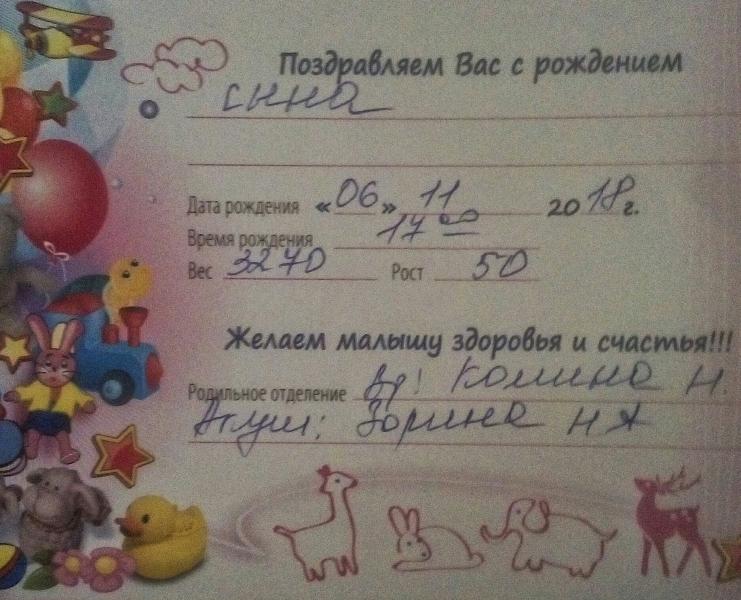 Поздравляем Вас с рождением
сына
Дата рождения «06» 11 2018 г.
Время рождения 17 00
Вес 3270 Рост 50
Желаем малышу здоровья и счастья!!!
Родильное отделение Вр: Комина Н.
Акуш: Зорина Н А